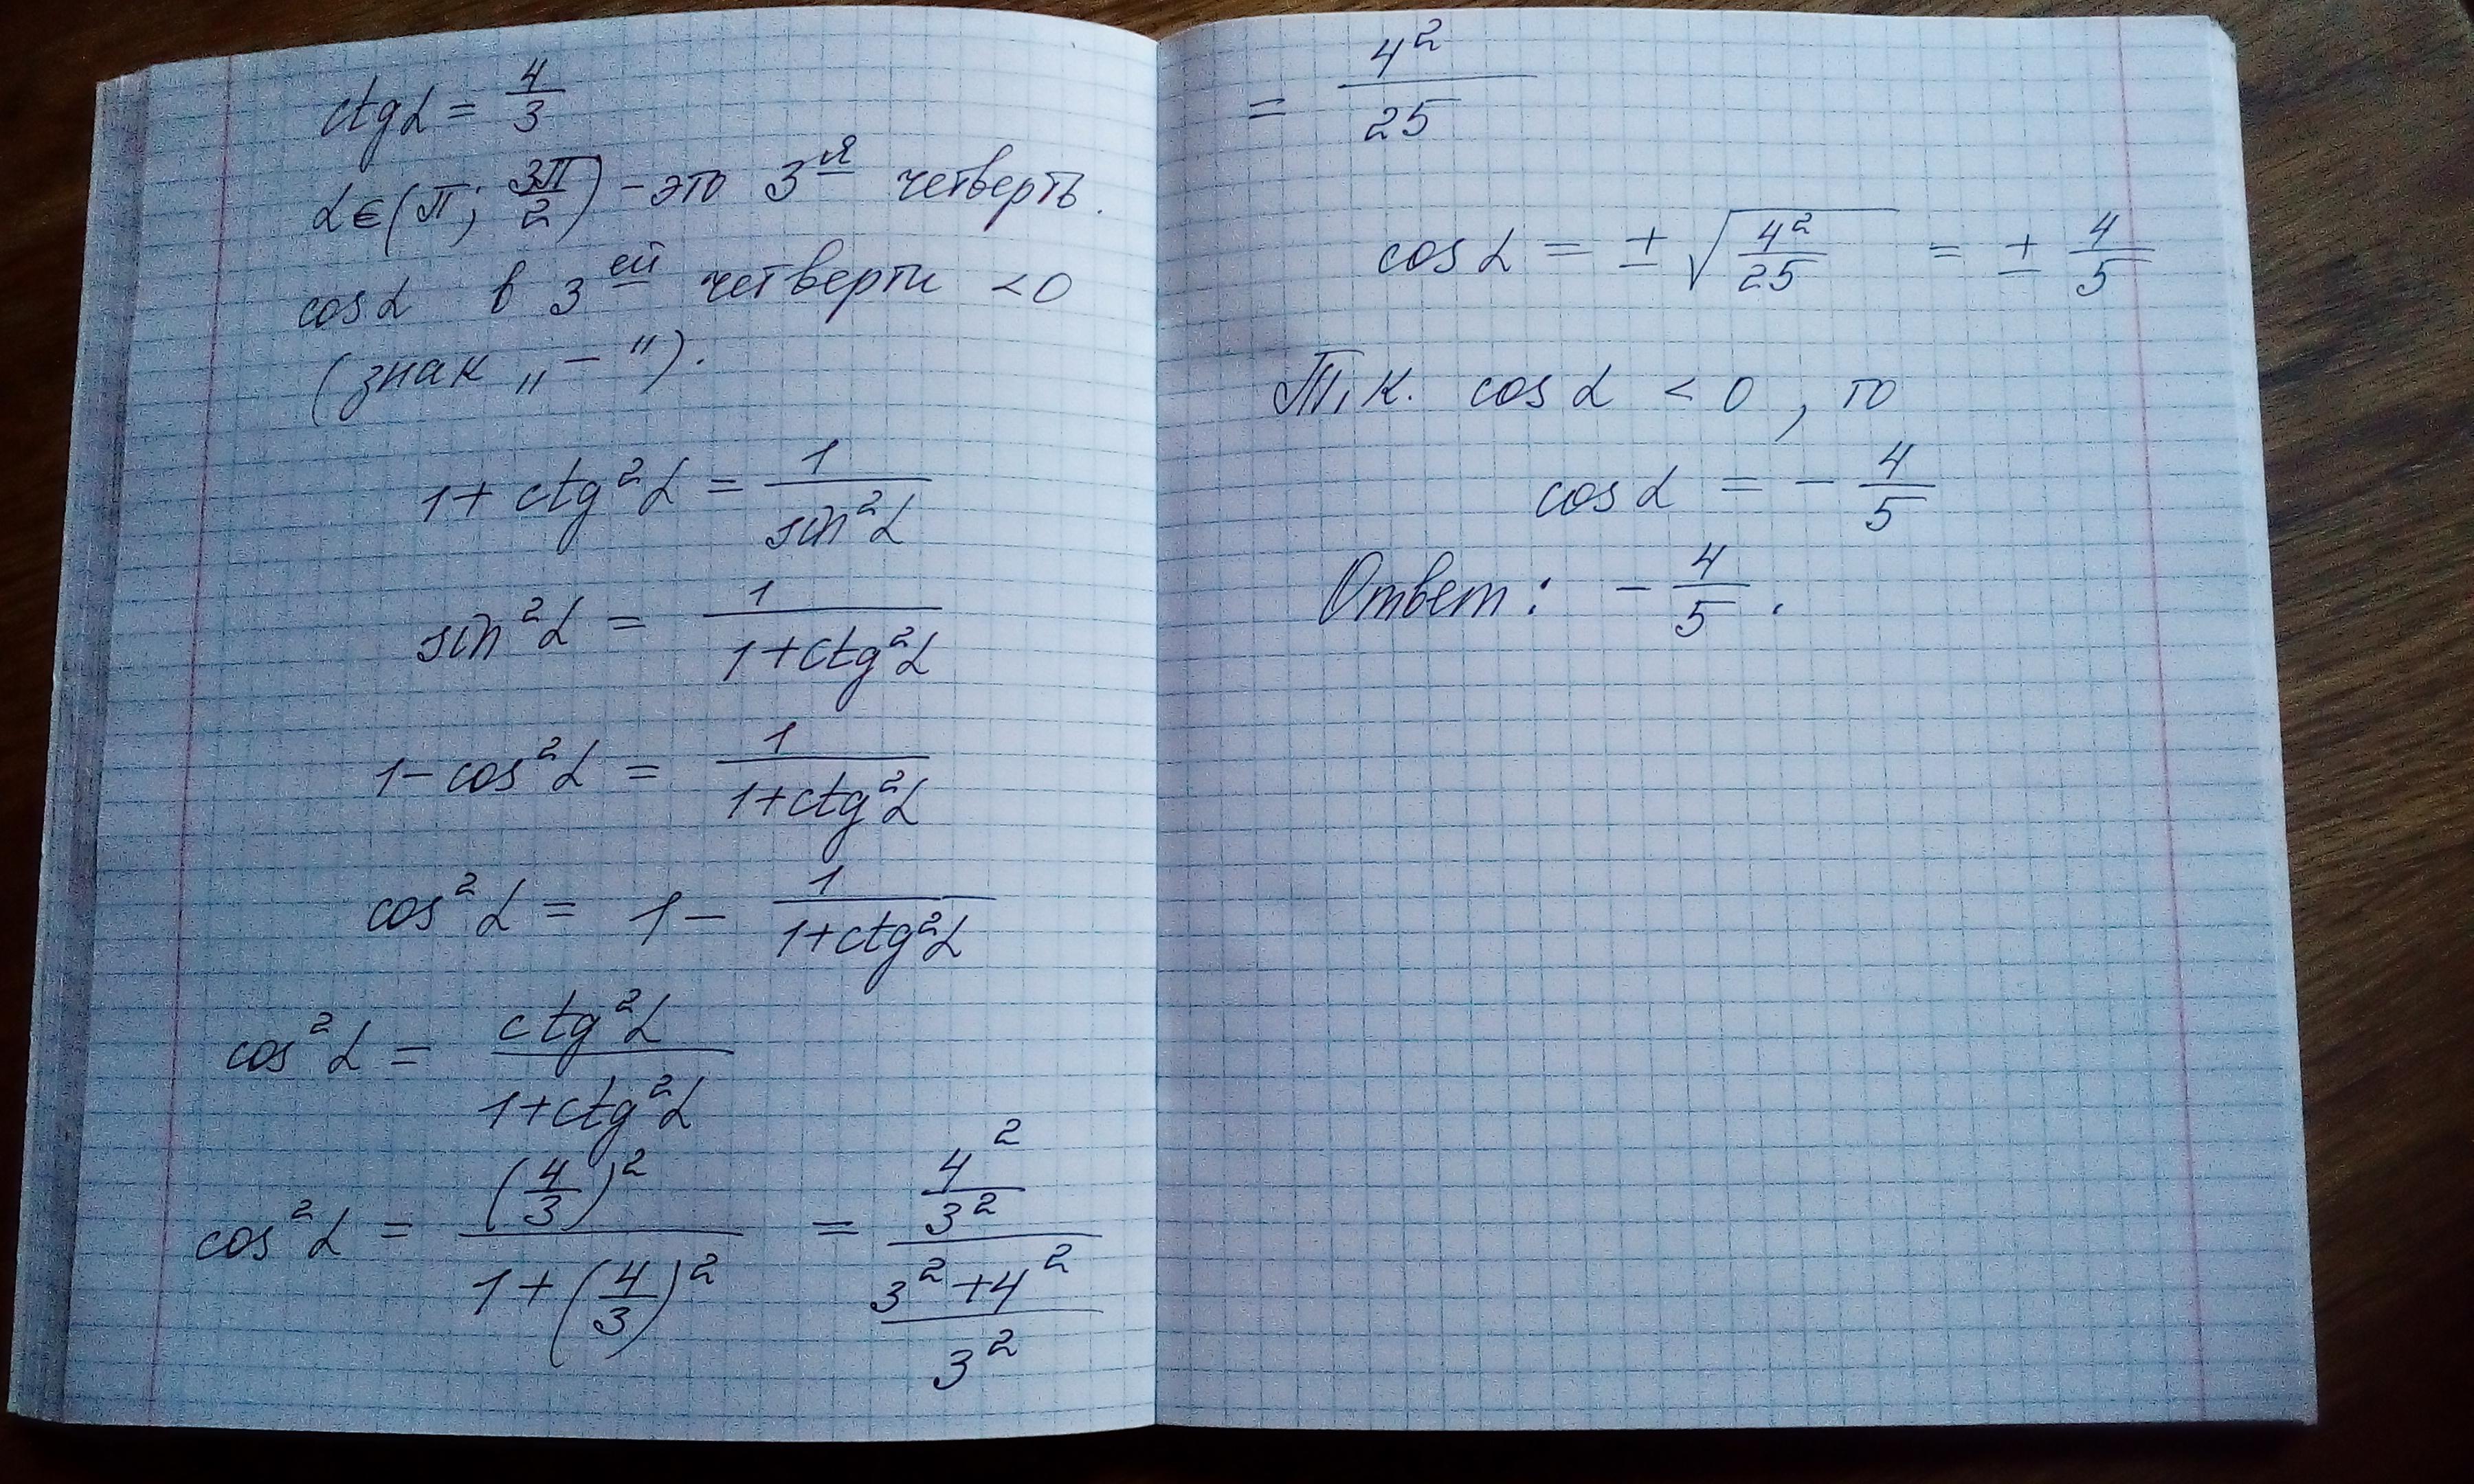 ctg α = 4/3
α ∈ (π; 3π/2) – это 3я четверть.
cos α в 3ей четверти < 0
(знак „ – ").
1 + ctg²α = 1/sin²α
sin²α = 1/(1 + ctg²α)
1 – cos²α = 1/(1 + ctg²α)
cos²α = 1 – 1/(1 + ctg²α)
cos²α = ctg²α/(1 + ctg²α)
cos²α = (4/3)²/(1 + (4/3)²) = (4²/3²)/((3² + 4²)/3²)
= 4²/25
cos α = ± √(4²/25) = ± 4/5
Т.к. cos α < 0, то
cos α = – 4/5
Ответ: – 4/5.